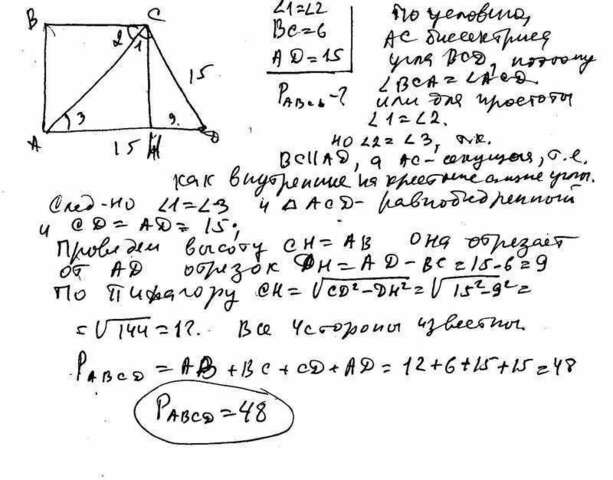 B
C
2
1
15
3
9
A
15
H
D
∠1=∠2
BC=6
AD=15
P_ABCD-?
По условию,
AC биссектриса
угла BCD, поэтому
∠BCA=∠ACD
или для простоты
∠1=∠2.
но ∠2=∠3, т.к.
BC||AD, а AC-секущая, т.е.
как внутренние накрестлежащие углы.
След-но ∠1=∠3 и △ACD-равнобедренный
и CD=AD=15;
Проведем высоту CH=AB она отрезает
от AD отрезок DH=AD-BC=15-6=9
По Пифагору CH=√CD²-DH²=√15²-9²=
=√144=12. Все 4 стороны известны.
P_ABCD=AB+BC+CD+AD=12+6+15+15=48
P_ABCD=48